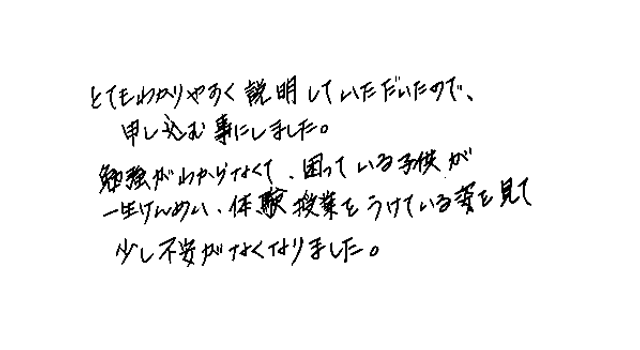 とてもわかりやすく説明していただいたので、
申し込む事にしました。
勉強がわからなくて、困っている子供が
一生けんめい、体験授業をうけている姿を見て
少し不安がなくなりました。